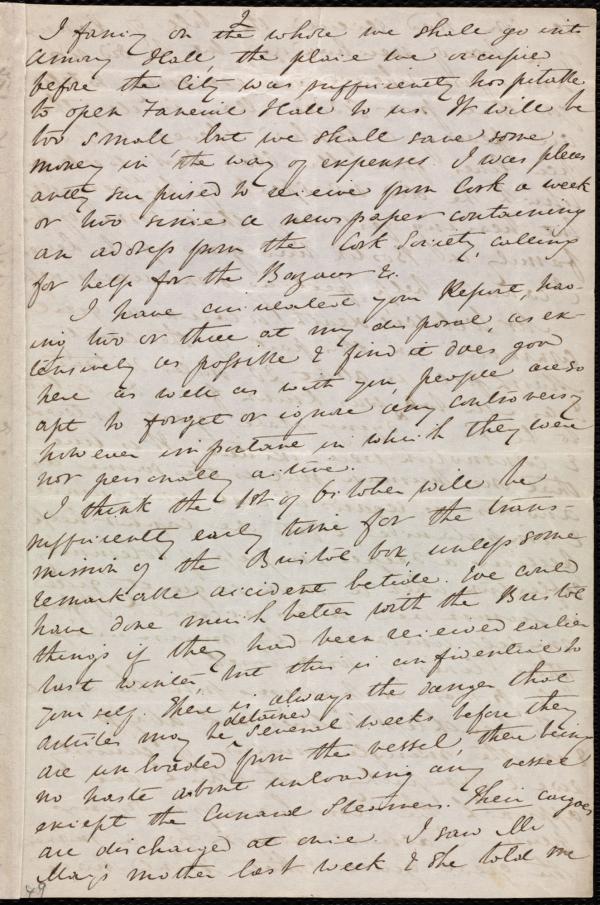 2
I fancy on the whole we shall go into
Amory Hall, the place we occupied
before the City was sufficiently hospitable
to open Faneuil Hall to us. It will be
too small, but we shall save some
money in the way of expenses. I was pleas
antly surprised to receive from Cork a week
or two since a newspaper containing
an address from the Cork Society, calling
for help for the Bazaar &.
I have circulated your Report, hav-
ing two or three at my disposal, as ex-
tensively as possible & find it does good
here as well as with you, people are so
apt to forget or ignore any controversy
however important in which they were
not personally active.
I think the 1st of October will be
sufficiently early time for the trans
mission of the Bristol box, unless some
remarkable accident betide. We could
have done much better with the Bristol
things if they had been received earlier
last winter, but this is confidential to
yourself. There is always the danger that
articles may be detained several weeks before they
are unloaded from the vessel, there being
no haste about unloading any vessel
except the Cunard Steamers. Their cargoes
are discharged at once. I saw Mr
May's mother last week & she told me